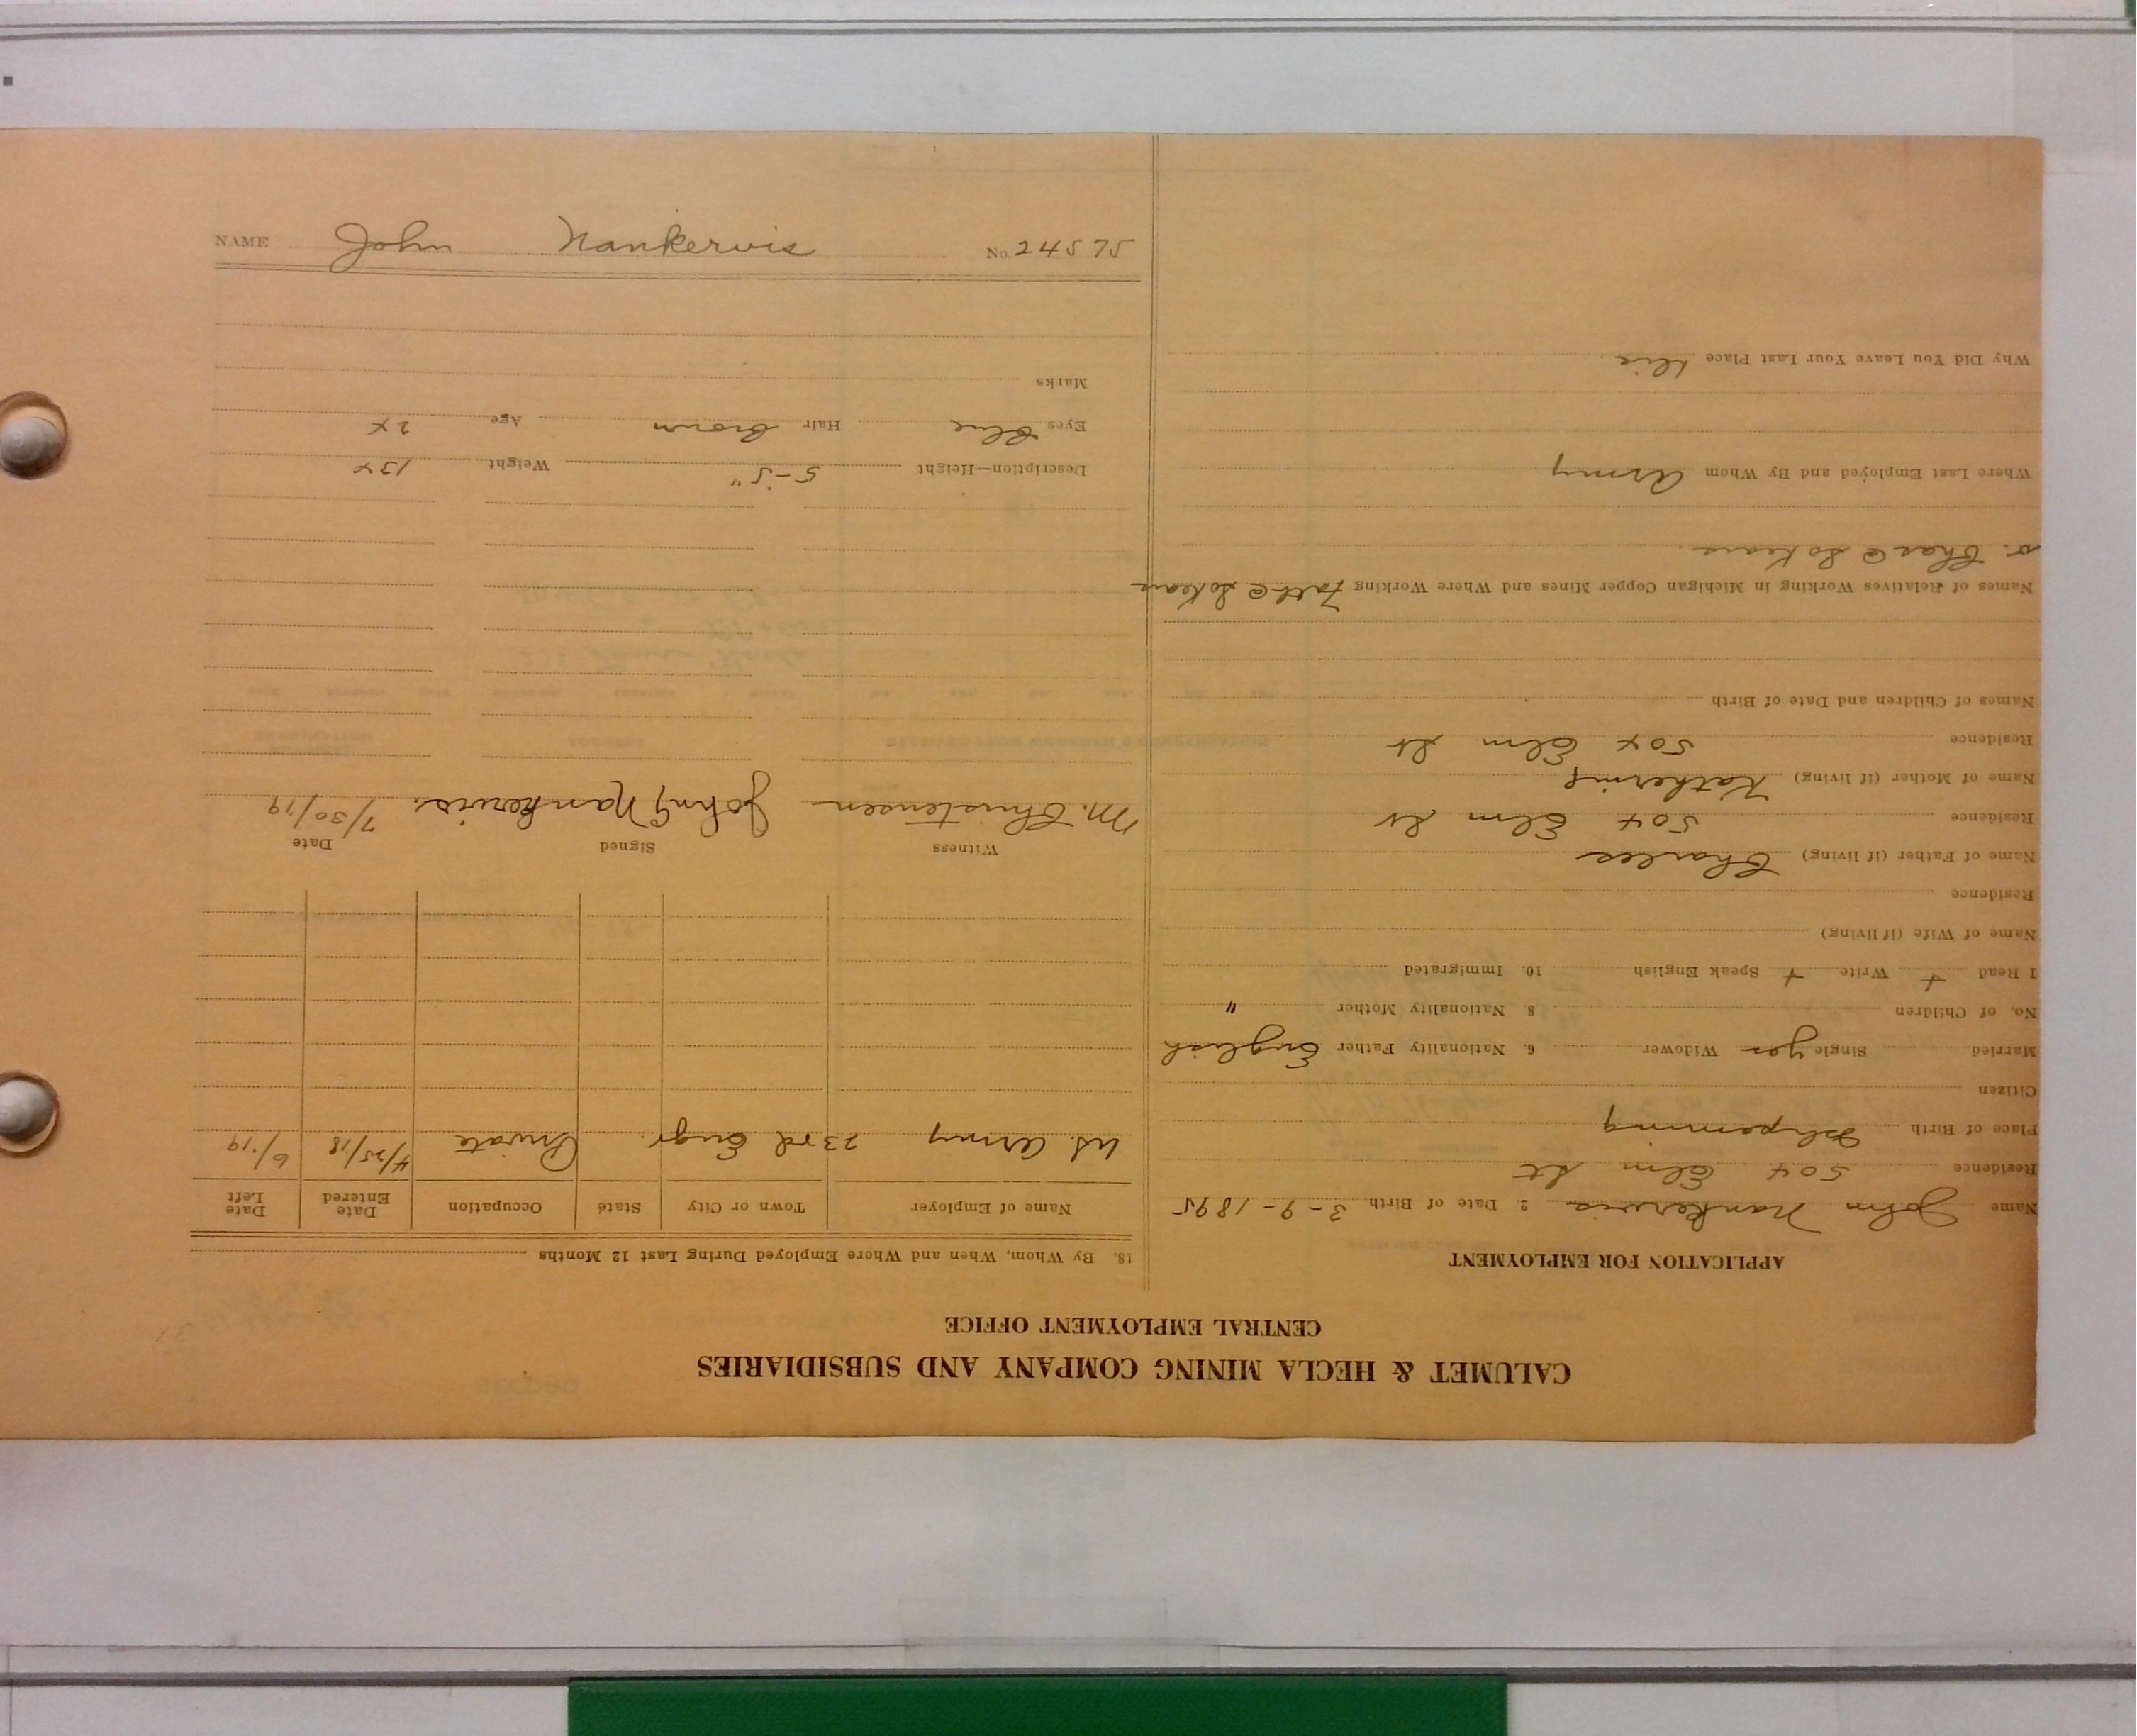 CALUMET & HECLA MINING COMPANY AND SUBSIDIARIES
CENTRAL EMPLOYMENT OFFICE
APPLICATION FOR EMPLOYMENT
Name John Nankervis 2. Date of Birth 3-9-1895
Residence 504 Elm St
Place of Birth Ishpeming
Citizen
Married Single yes Widower 6. Nationality Father English
No. of Children 8. Nationality Mother "
I Read + Write + Speak English 10. Immigrated
Name of Wife (if living)
Residence
Name of Father (if living) Charles
Residence 504 Elm St
Name of Mother (if living) Katherine
Residence 504 Elm St
Names of Children and Date of Birth
Names of Relatives Working in Michigan Copper Mines and Where Working
Where Last Employed and By Whom Army
Why Did You Leave Your Last Place
18. By Whom, When and Where Employed During Last 12 Months
Name of Employer Town or City State Occupation Date Entered Date Left
U.S. Army 23rd Engr. Private 4/25/18 6/'19
Witness Signed Date
M. Christensen John Nankervis. 7/30/19
Description—Height 5-5" Weight 134
Eyes Blue Hair Brown Age 24
Marks
NAME John Nankervis No. 24575